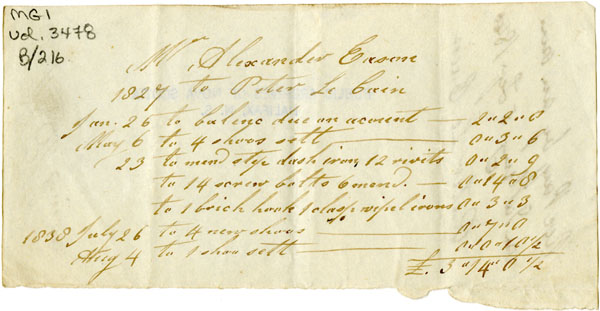 MG1
vol. 3478
B/216
Mr Alexander Eason
1827 to Peter Le Cain
Jan. 26 to balenc due on acount — 2"2"0
May 6 to 4 shoos sett — 0"3"6
23 to mend step dash iron, 12 rivits 0"2"9
to 14 screw bolts 6 mend. — 0"14"8
to 1 brich hook 1 clasp wipel irons 0"3"3
1838 July 26 to 4 new shoos — 0"7"0
Aug 4 to 1 shoo sett — 0"0"10½
£. 3"14"0½